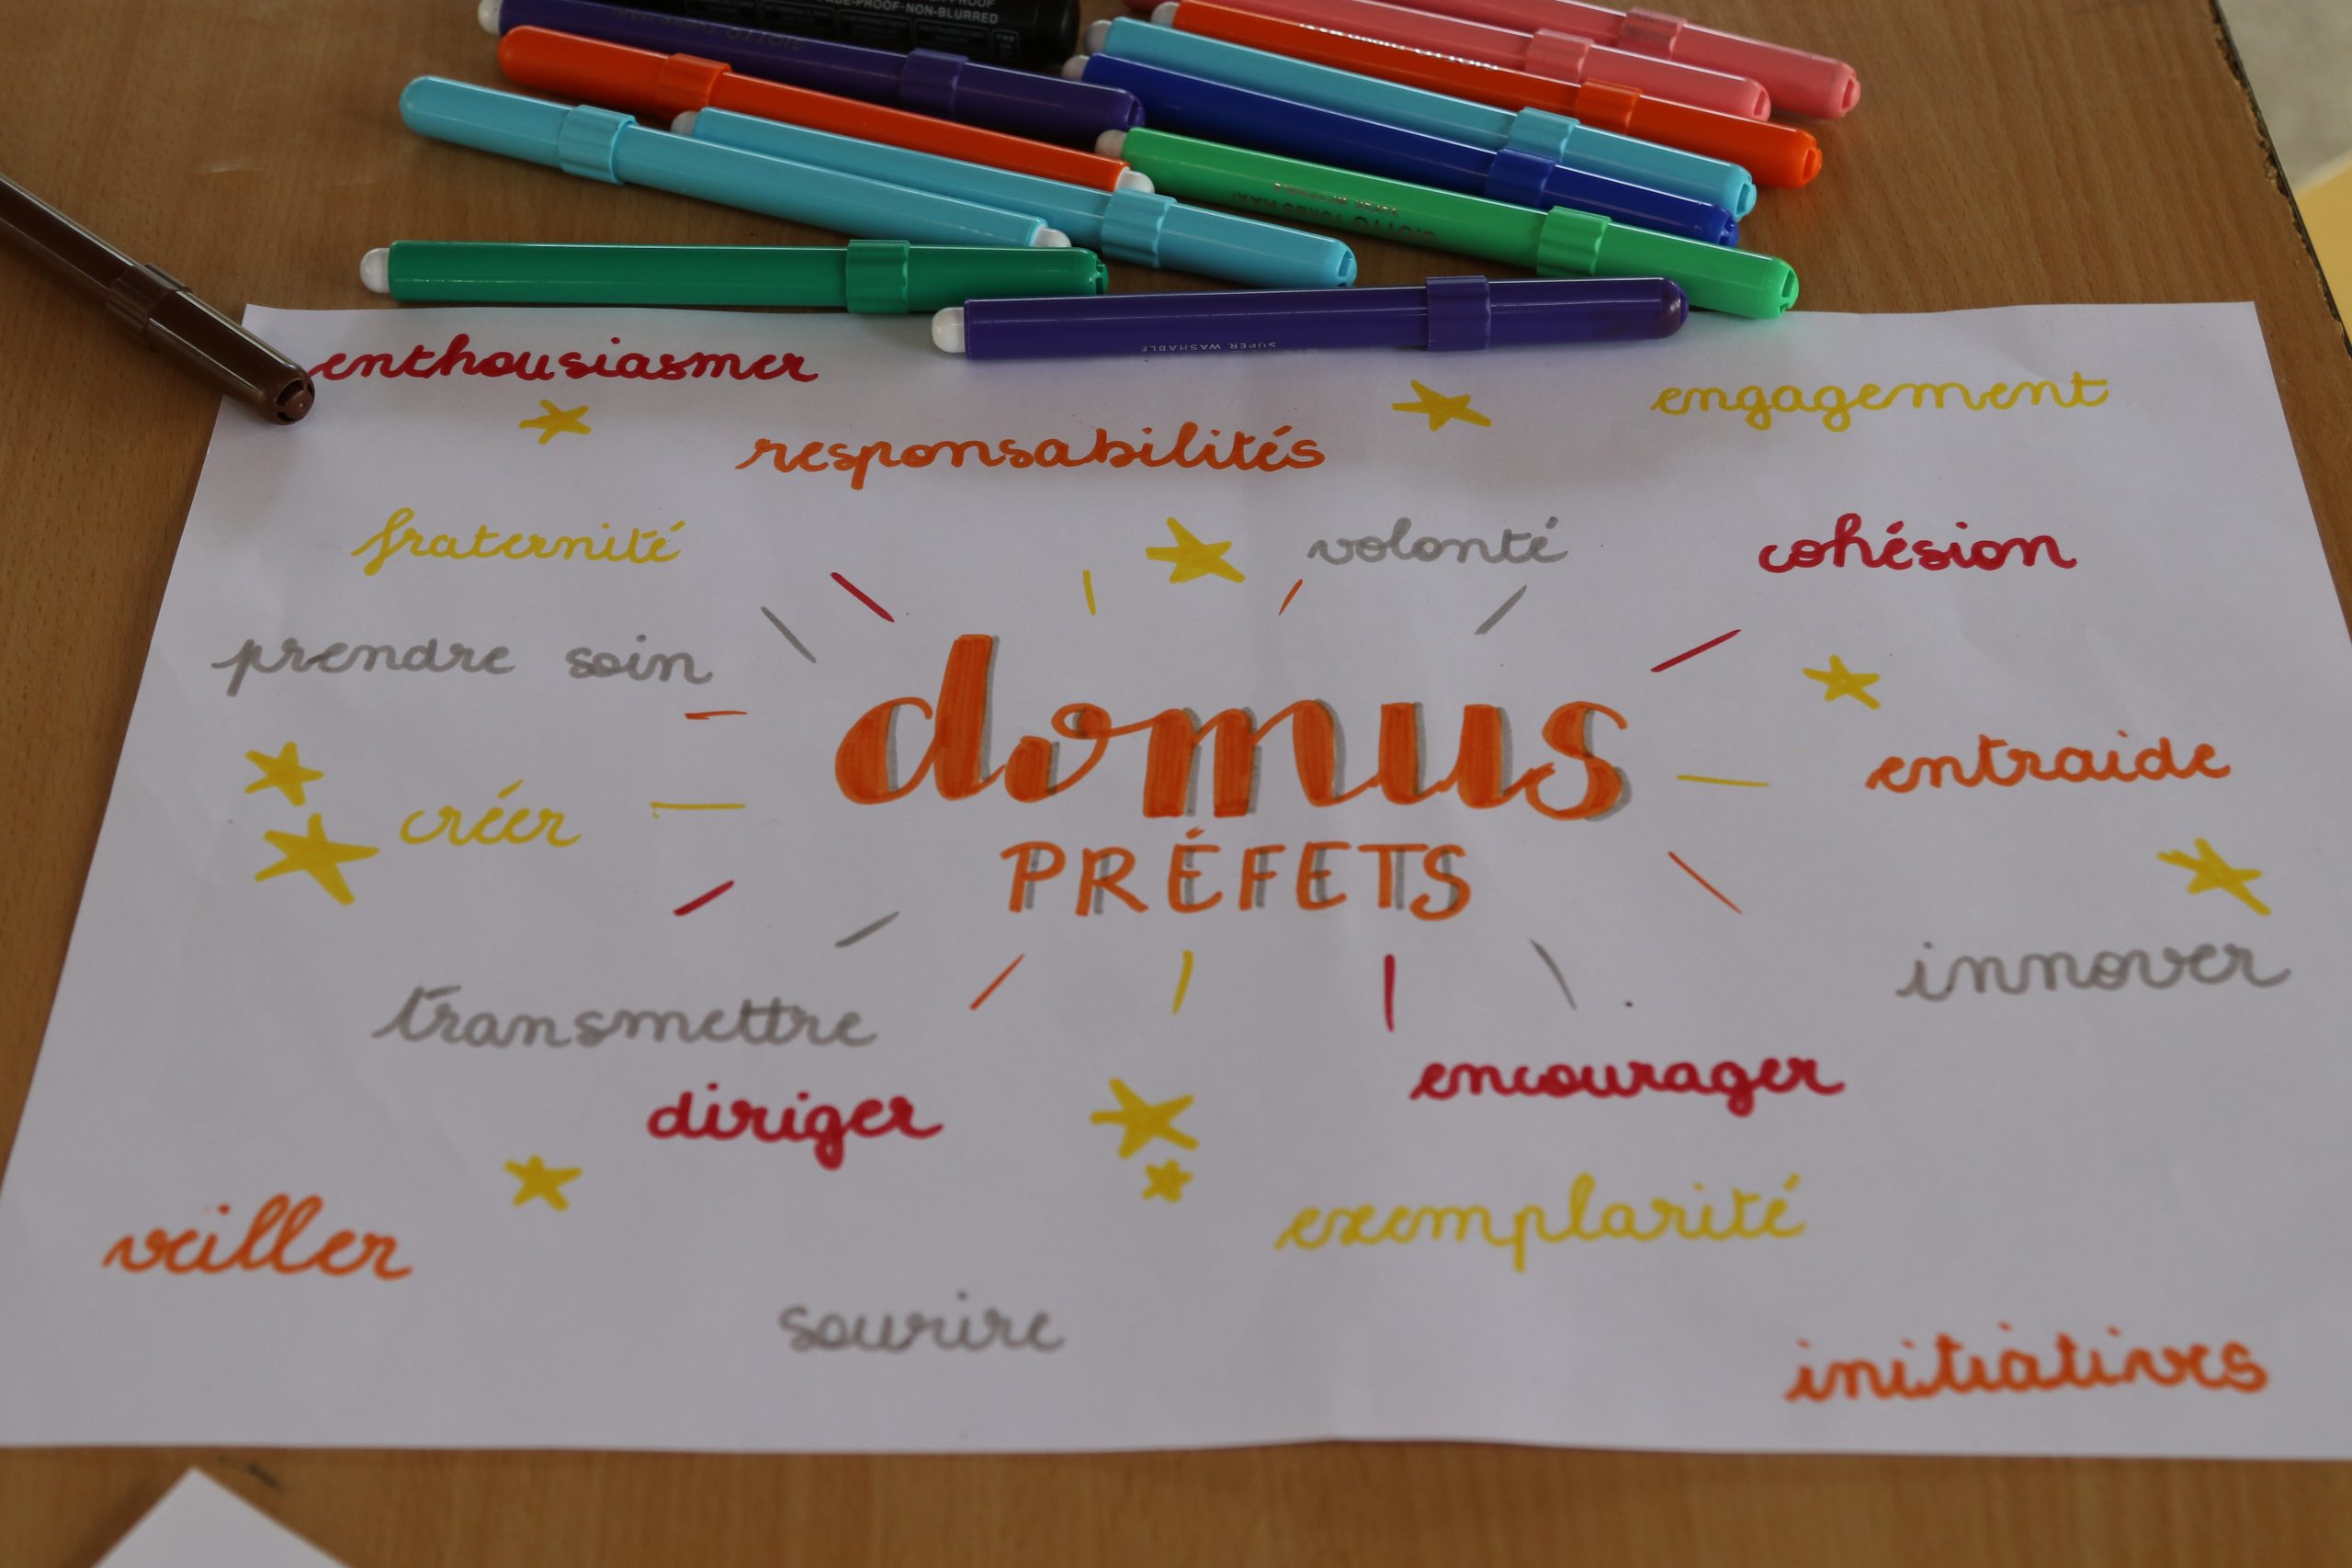 NON-BLURRED
SUPER WASHABLE
enthousiasmer
engagement
responsabilités
fraternité
volonté
cohésion
prendre soin
domus
entraide
créer
PRÉFETS
innover
transmettre
encourager
diriger
exemplarité
veiller
sourire
initiatives